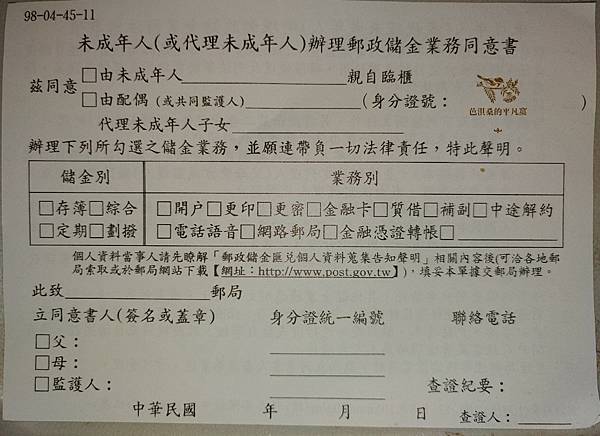 98-04-45-11
未成年人(或代理未成年人)辦理郵政儲金業務同意書
茲同意
□由未成年人____________親自臨櫃
□由配偶(或共同監護人)____________(身分證號： )
芭淇桑的平凡窩
代理未成年人子女____________
辦理下列所勾選之儲金業務，並願連帶負一切法律責任，特此聲明。
儲金別 業務別
□存簿□綜合 □開戶□更印□更密□金融卡□質借□補副□中途解約
□定期□劃撥 □電話語音□網路郵局□金融憑證轉帳□__________
個人資料當事人請先瞭解「郵政儲金匯兌個人資料蒐集告知聲明」相關內容後(可洽各地郵
局索取或於郵局網站下載【網址：http://www.post.gov.tw】)，填妥本單據交郵局辦理。
此致____________郵局
立同意書人(簽名或蓋章) 身分證統一編號 聯絡電話
□父： ____________
□母： ____________
□監護人： ____________ 查證紀要：
中華民國 年 月 日 查證人：______